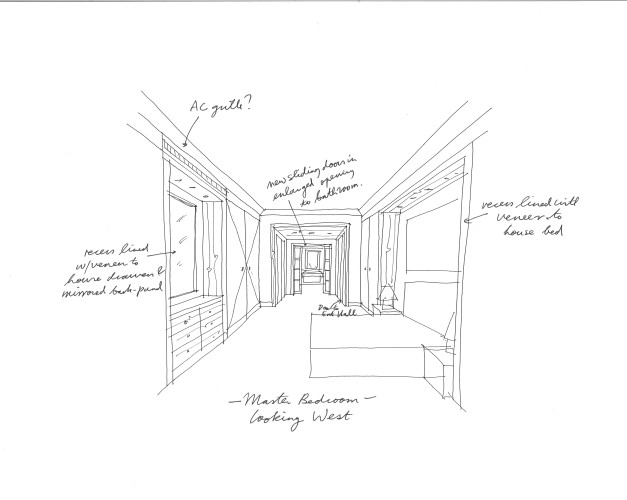 AC grille?
new sliding doors in
enlarged opening
to bathroom.
recess lined with
veneer to
house bed
recess lined
w/veneer to
house drawers &
mirrored back-panel
Hall
— Master Bedroom —
looking West